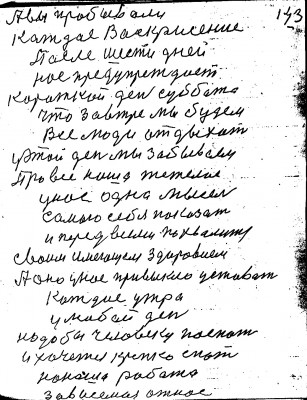 143
Авы пробывали
Каждае Васкрисение
После шести дней
нас предупреждает
Короткой ден суббота
Что завтре мы будем
Все люди отдыхат
и этой ден мы забываем
Про все наша тежолае
у нас одна мысел
самаго себя показат
и перед всеми
своим имеющем здоровием
А оно у нас привыкло устават
Каждае утра
у любой ден
надобы человеку поспат
и хочетса крепко спат
но наша работа